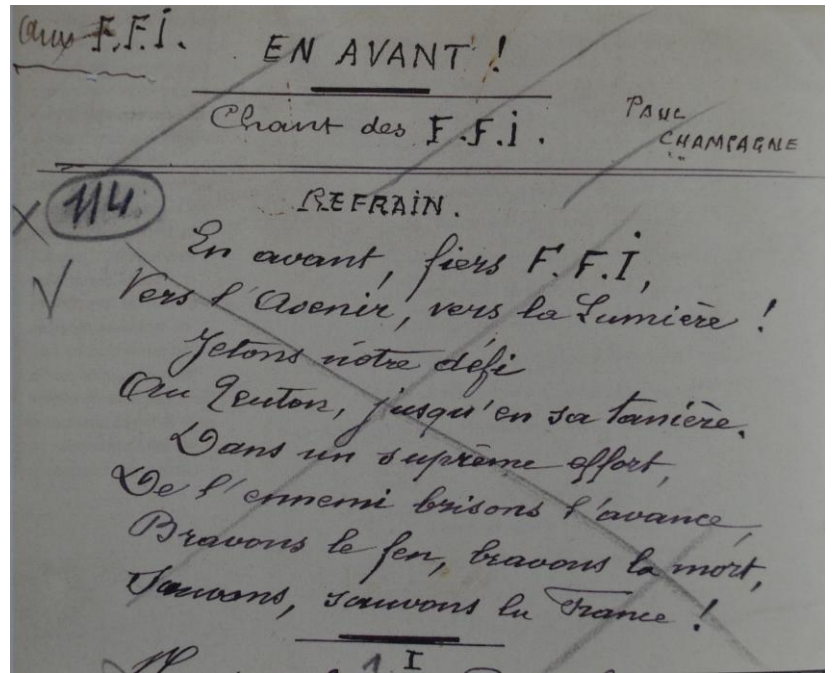 aux F.F.I.
EN AVANT !
Chant des F.F.I.
PAUL
CHAMPAGNE
114
REFRAIN.
En avant, fiers F.F.I,
Vers l'Avenir, vers la Lumière !
Jetons notre défi
Au Teuton, jusqu'en sa tanière.
Dans un suprême effort,
De l'ennemi brisons l'avance,
Bravons le feu, bravons la mort,
Sauvons, sauvons la France !
I